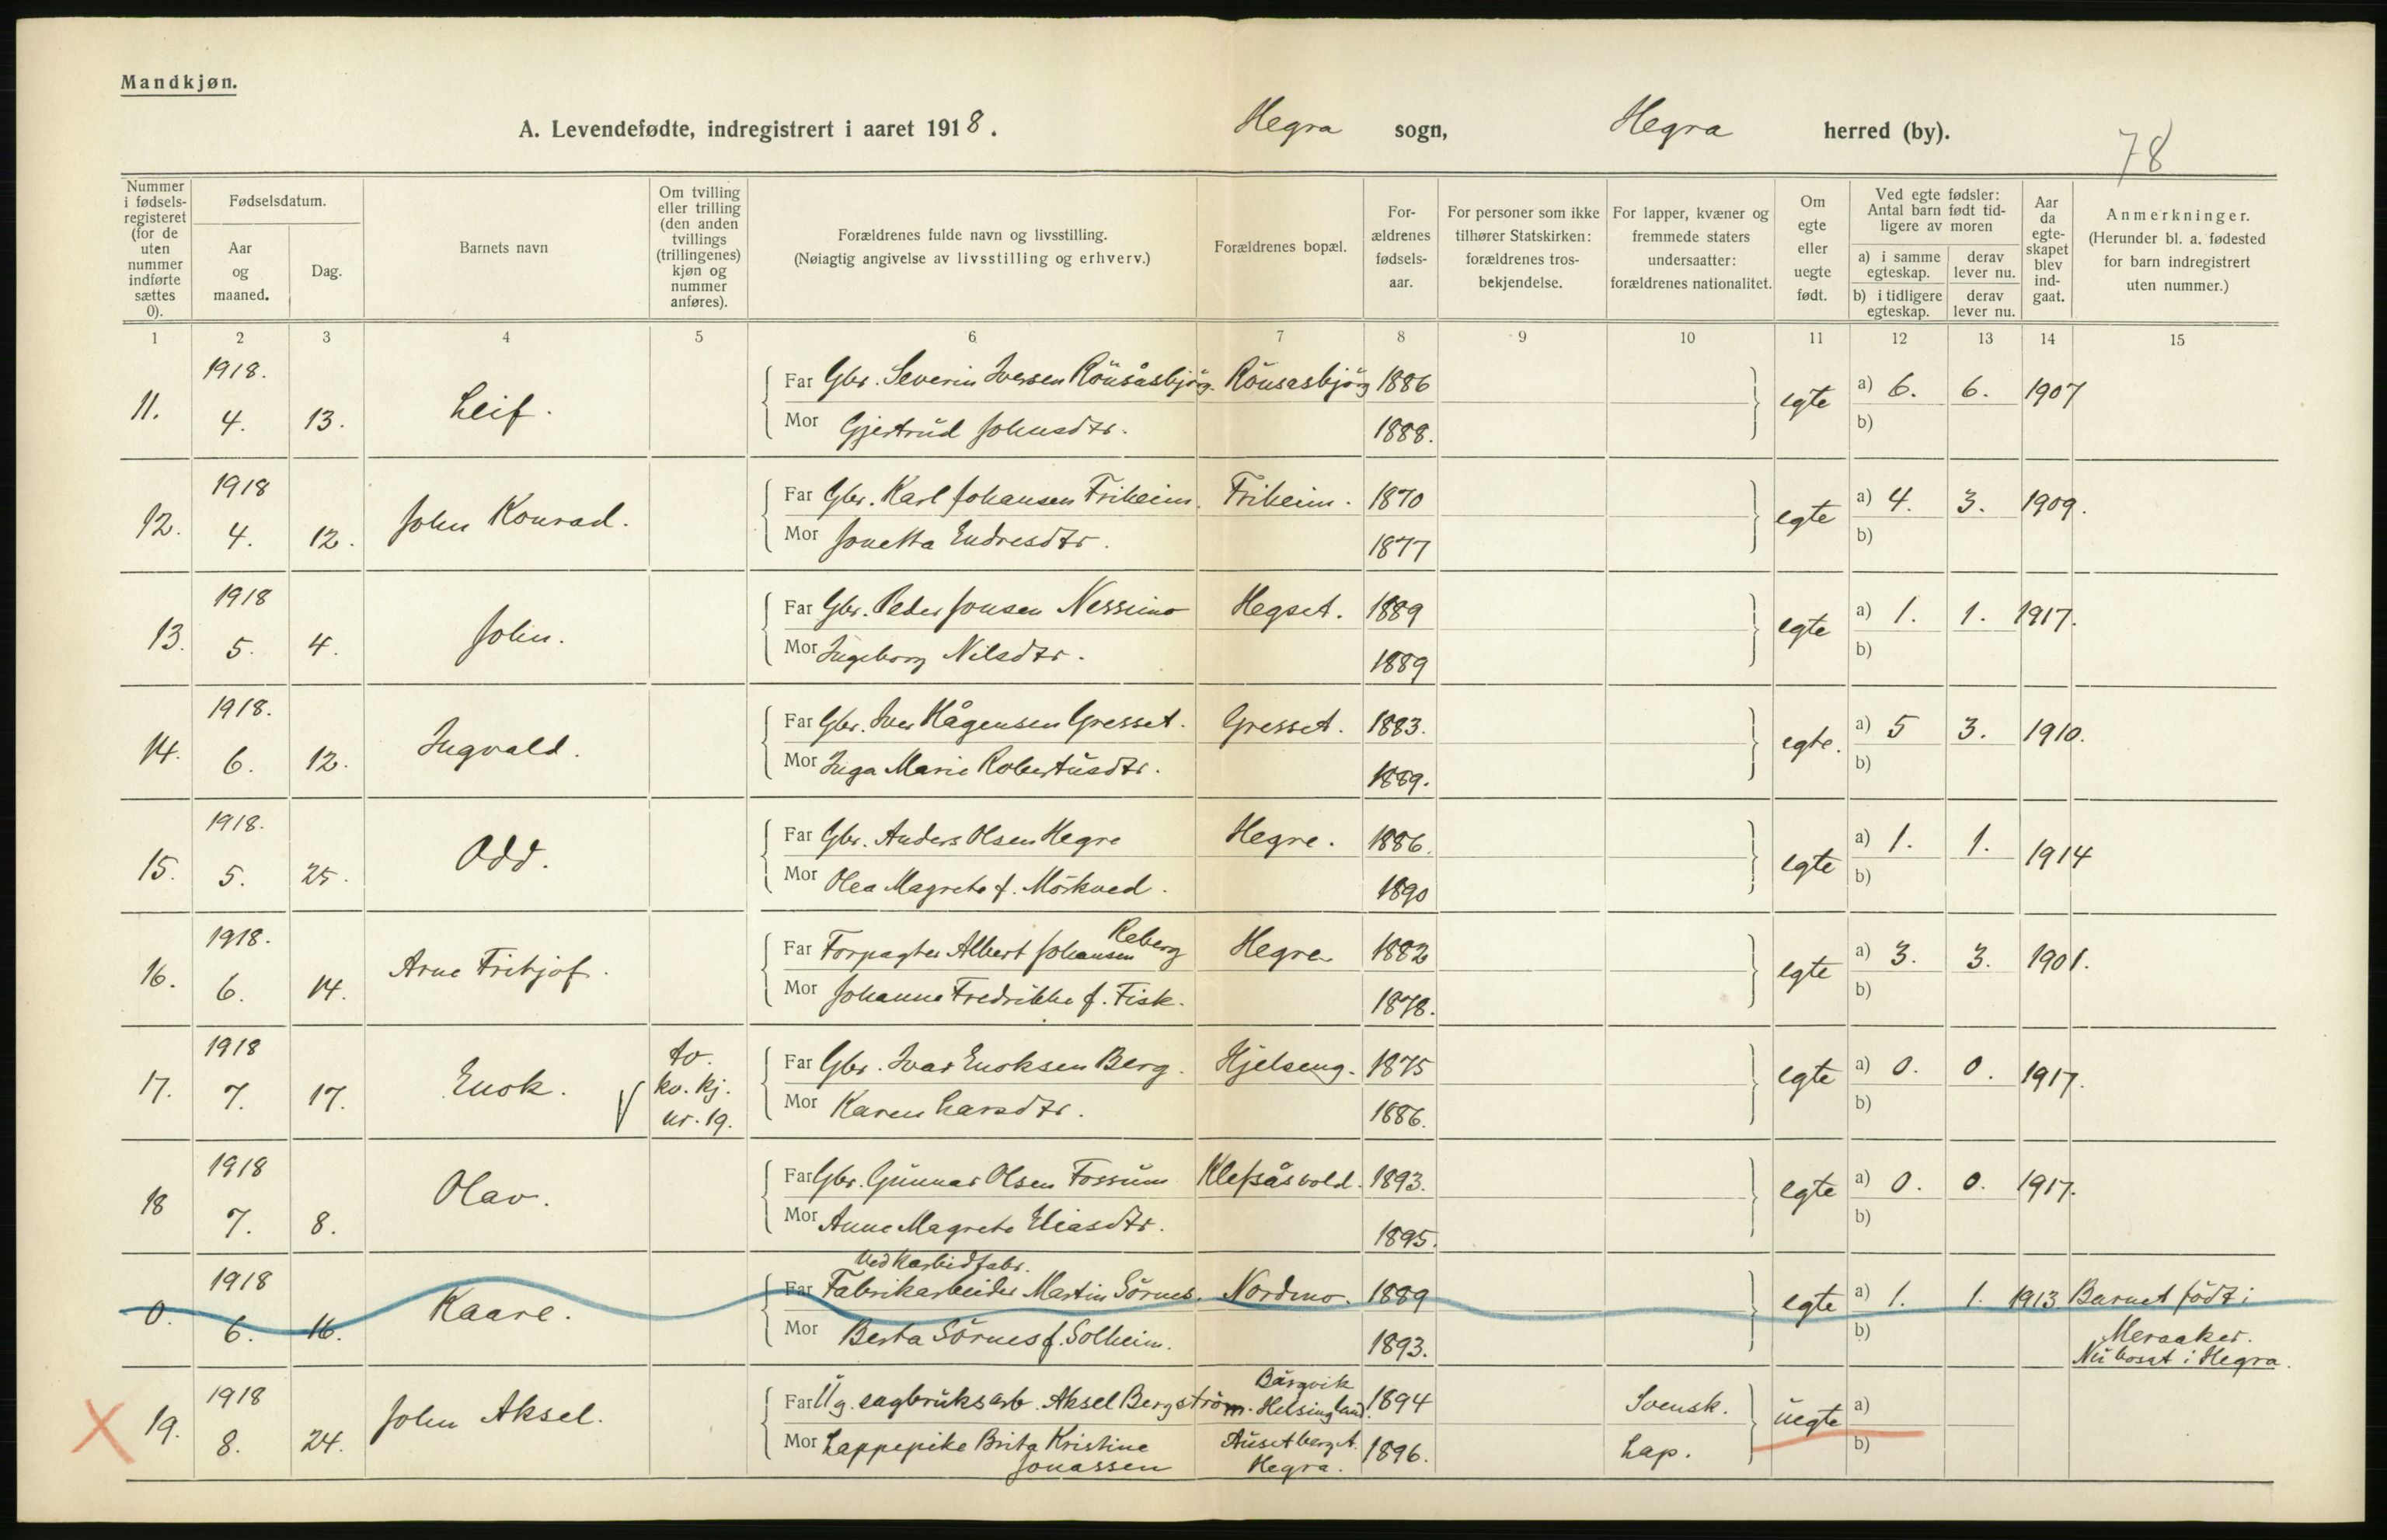 Mandkjøn.
A. Levendefødte, indregistrert i aaret 1918. Hegra sogn, Hegra herred (by).
78
Nummer i fødsels-registeret (for de uten nummer indførte sættes 0).
Fødselsdatum.
Aar og maaned.
Dag.
Barnets navn
Om tvilling eller trilling (den anden tvillings (trillingenes) kjøn og nummer anføres).
Forældrenes fulde navn og livsstilling.
(Nøiagtig angivelse av livsstilling og erhverv.)
Forældrenes bopæl.
For-ældrenes fødsels-aar.
For personer som ikke tilhører Statskirken: forældrenes tros-bekjendelse.
For lapper, kvæner og fremmede staters undersaatter: forældrenes nationalitet.
Om egte eller uegte født.
Ved egte fødsler: Antal barn født tid-ligere av moren
a) i samme egteskap.
derav lever nu.
b) i tidligere egteskap.
derav lever nu.
Aar da egte-skapet blev ind-gaat.
Anmerkninger.
(Herunder bl. a. fødested for barn indregistrert uten nummer.)
1 2 3 4 5 6 7 8 9 10 11 12 13 14 15
1918.
11. 4. 13. Leif.
Far Gbr. Severin Iversen Rönsåsbjörg. Rönsasbjörg 1886
Mor Gjertrud Johnsdtr. 1888.
egte a) 6. 6. 1907
b)
1918
12. 4. 12. John Konrad.
Far Gbr. Karl Johansen Friheim. Friheim. 1870
Mor Jonetta Endresdtr. 1877
egte a) 4. 3. 1909.
b)
1918
13. 5. 4. John.
Far Gbr. Peder Jonsen Nessimo Hegset. 1889
Mor Ingeborg Nilsdtr. 1889
egte a) 1. 1. 1917.
b)
1918.
14. 6. 12. Ingvald.
Far Gbr. Iver Hågensen Gresset. Gresset. 1883.
Mor Inga Marie Robertusdtr. 1889.
egte. a) 5 3. 1910.
b)
1918.
15. 5. 25. Odd.
Far Gbr. Anders Olsen Hegre Hegre. 1886.
Mor Olea Magrete f. Mörkved. 1890
egte a) 1. 1. 1914
b)
1918.
16. 6. 14. Arne Fritjof.
Far Forpagter Albert Johansen Reberg Hegre 1882
Mor Johanna Fredrikke f. Fisk. 1878.
egte a) 3. 3. 1901.
b)
1918
17. 7. 17. Enok. tv. kv. kj. nr. 19.
Far Gbr. Ivar Enoksen Berg. Hjelseng. 1875
Mor Karen Larsdtr. 1886.
egte a) 0. 0. 1917.
b)
1918
18 7. 8. Olav.
Far Gbr. Gunnar Olsen Fossum Klefsåsvold. 1893.
Mor Anne Magrete Eliasdtr. 1895.
egte a) 0. 0. 1917.
b)
1918
0. 6. 16. Kaare.
Ved Karbidfabr.
Far Fabrikarbeider Martin Sörnes. Nordmo. 1889
Mor Berta Sörnes f. Solheim. 1893.
egte a) 1. 1. 1913. Barnet födt i
b) Meraaker.
Nu bosat i Hegra.
1918
19. 8. 24. John Aksel.
Far Ug. sagbruksarb. Aksel Bergström. Bärgvik Helsingland. 1894 Svensk.
Mor Lappepike Brita Kristine Jonassen Auset berget. Hegra. 1896. Lap.
uegte a)
b)